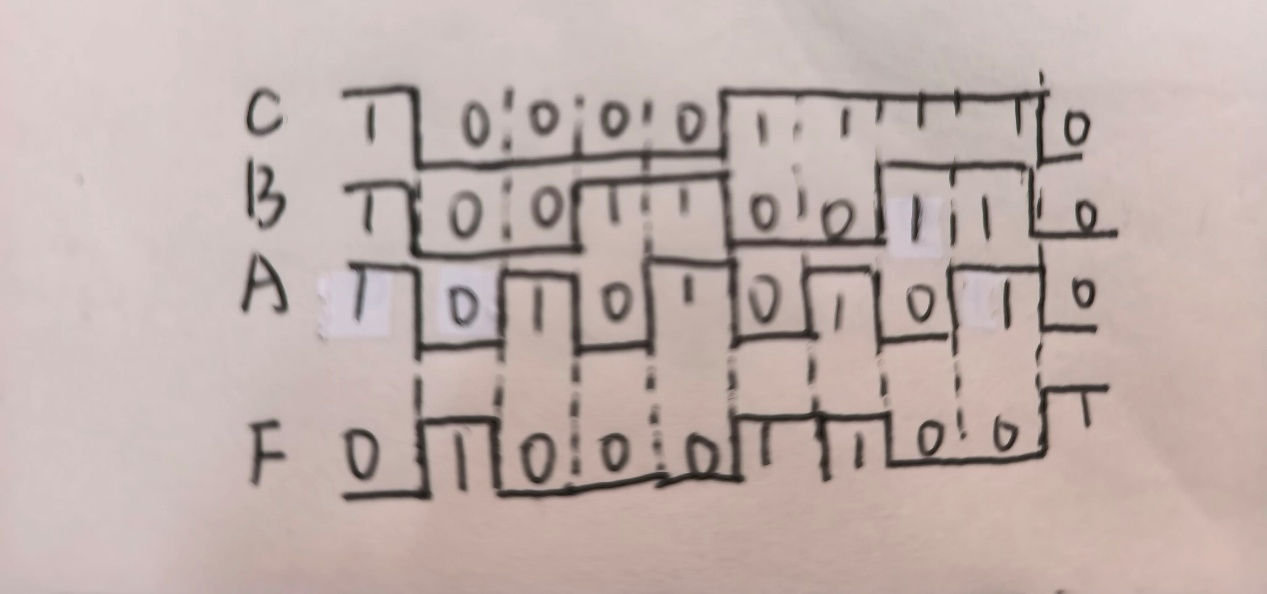 C 1 0 0 0 0 1 1 1 1 0
B 1 0 0 1 1 0 0 1 1 0
A 1 0 1 0 1 0 1 0 1 0
F 0 1 0 0 0 1 1 0 0 1